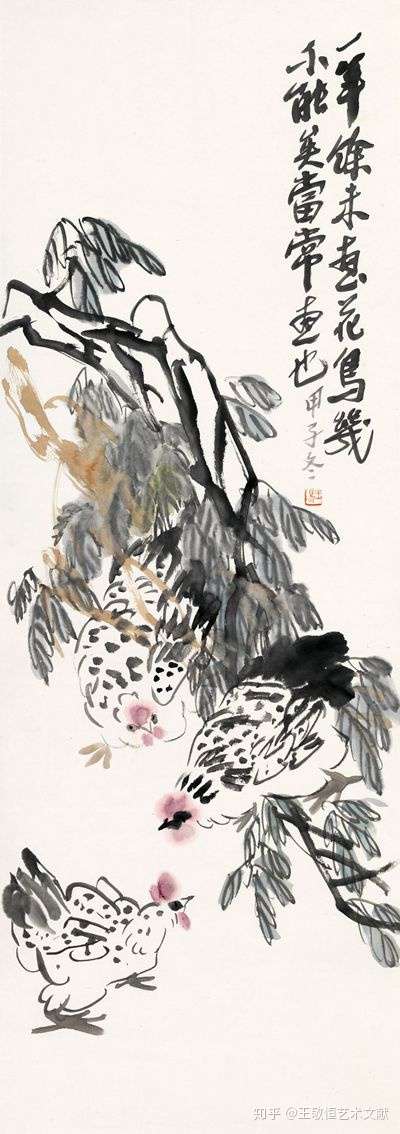 一年餘未畫花鳥幾
不能矣當常畫也甲子冬
知乎 @王敬恒艺术文献